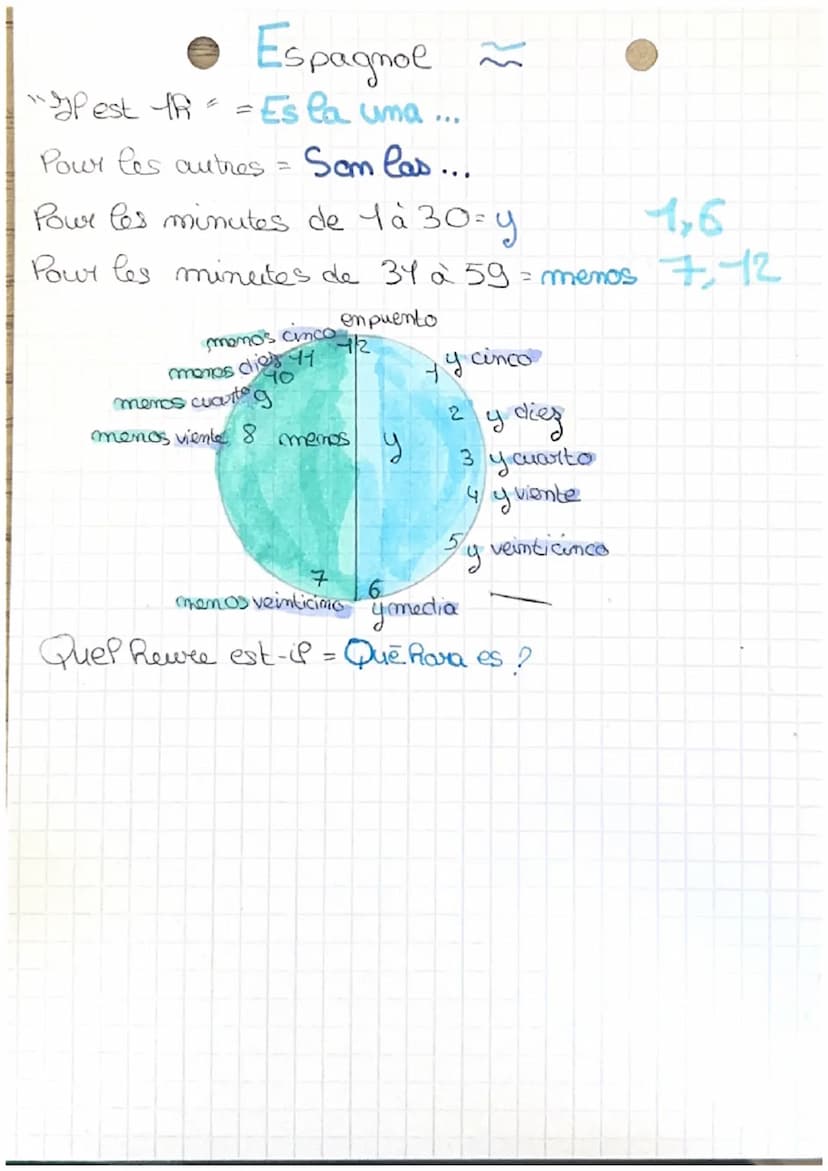 Espagnol
"Il est 1h" = Es la una ...
Pour les autres = Son las ...
Pour les minutes de 1 à 30 = y 1,6
Pour les minutes de 31 à 59 = menos 7,12
en puento
menos cinco 12
menos diez 11 1 y cinco
10
menos cuarto 9 2 y diez
menos viente 8 menos y 3 y cuarto
4 y viente
5 y veinticinco
7 6
menos veinticinco y media
Quel heure est-il = Qué hora es ?